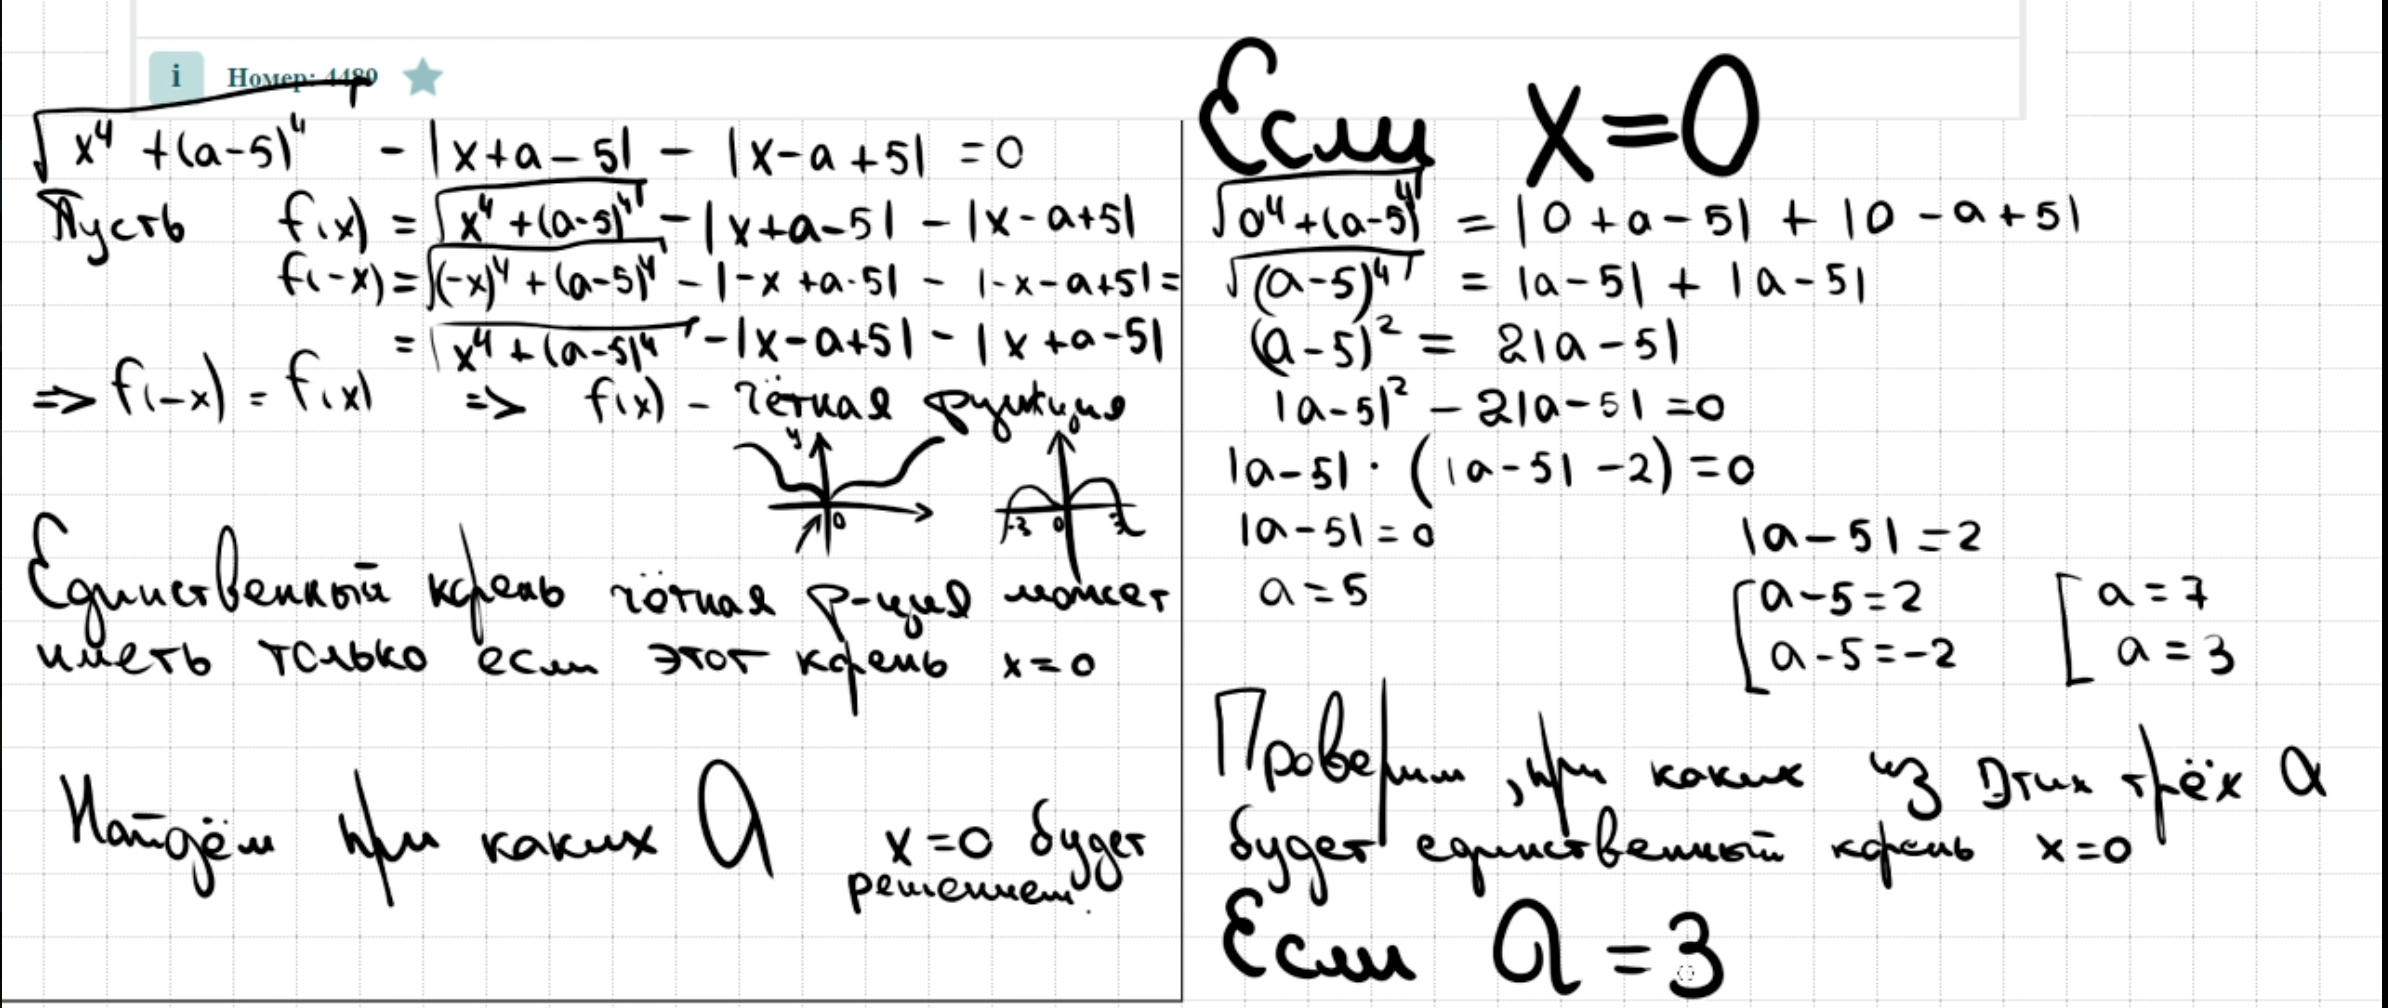 i Номер: 4489
√(x⁴ + (a-5)⁴) - |x+a-5| - |x-a+5| = 0
Пусть f(x) = √(x⁴ + (a-5)⁴) - |x+a-5| - |x-a+5|
f(-x) = √((-x)⁴ + (a-5)⁴) - |-x+a-5| - |-x-a+5| =
= √(x⁴ + (a-5)⁴) - |x-a+5| - |x+a-5|
=> f(-x) = f(x) => f(x) - чётная функция
y
0
-3 0 3
Единственный корень чётная ф-ция может
иметь только если этот корень x=0
Найдём при каких a x=0 будет
решением.
Если x=0
√(0⁴ + (a-5)⁴) = |0+a-5| + |0-a+5|
√((a-5)⁴) = |a-5| + |a-5|
(a-5)² = 2|a-5|
|a-5|² - 2|a-5| = 0
|a-5| · (|a-5| - 2) = 0
|a-5| = 0 |a-5| = 2
a = 5 [a-5=2 [a=7
a-5=-2 a=3
Проверим, при каких из этих трёх a
будет единственный корень x=0
Если a = 3